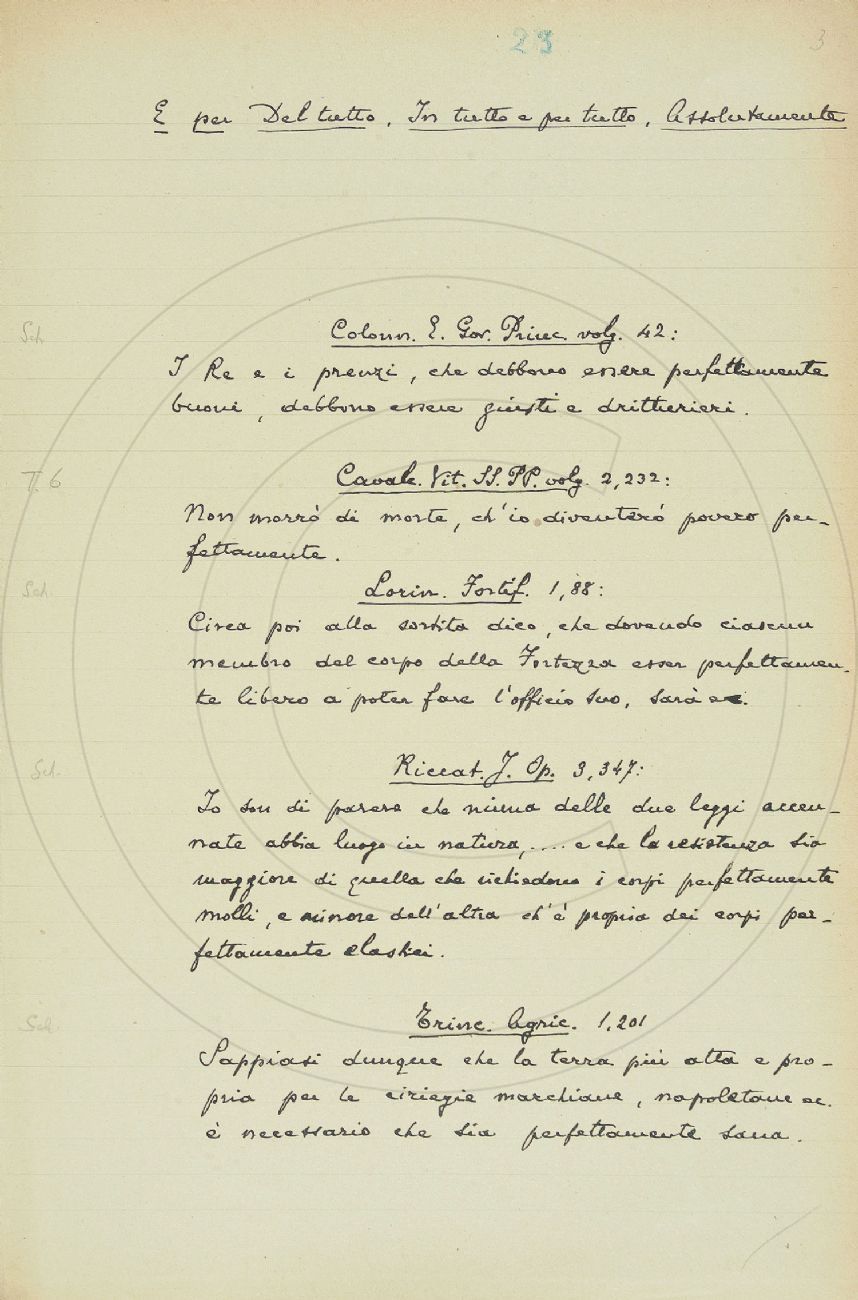 23
3
E per Del tutto, In tutto e per tutto, Assolutamente
Sch. Colonn. E. Gov. Princ. volg. 42:
I Re e i prenzi, che debbono essere perfettamente
buoni, debbono essere giusti e dritturieri.
T. 6 Cavalc. Vit. SS. PP. volg. 2,232:
Non morrò di morte, ch'io diventerò povero per-
fettamente.
Sch. Lorin. Fortif. 1,88:
Circa poi alla sortita dico, che dovendo ciascun
membro del corpo della Fortezza esser perfettamen-
te libero a poter fare l'officio suo, sarà ec.
Sch. Riccat. J. Op. 3,347:
Io son di parere che niuna delle due leggi accen-
nate abbia luogo in natura, .... e che la resistenza sia
maggiore di quella che richiedono i corpi perfettamente
molli, e minore dell'altra ch'è propria dei corpi per-
fettamente elastici.
Sch. Trinc. Agric. 1,201
Sappiasi dunque che la terra più atta e pro-
pria per le ciriegie marchiane, napoletane ec.
è necessario che sia perfettamente sana.